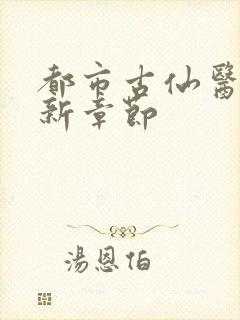 都市古仙醫
新章節
湯恩伯